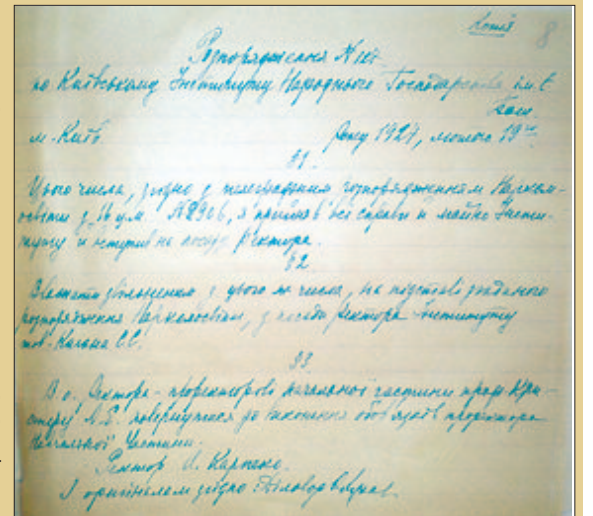 Копія 8
Розпорядження №107
по Київському Інституту Народного Господарства ім. Є.
Бош.
м. Київ. Року 1927, лютого 19
§1.
Цього числа, згідно з телеграфним розпорядженням Нарком-
освіти з 16 ц.м. я прийняв всі справи й майно Інсти-
туту й вступив на посаду Ректора.
§2.
Вважати звільненим з цього ж числа, на підставі згаданого
розпорядження Наркомосвіти, з посади Ректора Інституту
тов.
§3.
В.о. Ректора - проректорові навчальної частини проф. Кри-
стеру повернутися до виконання обов'язків проректора
Навчальної Частини.
Ректор И. Карпенко.
З оригіналом згідно: Діловод